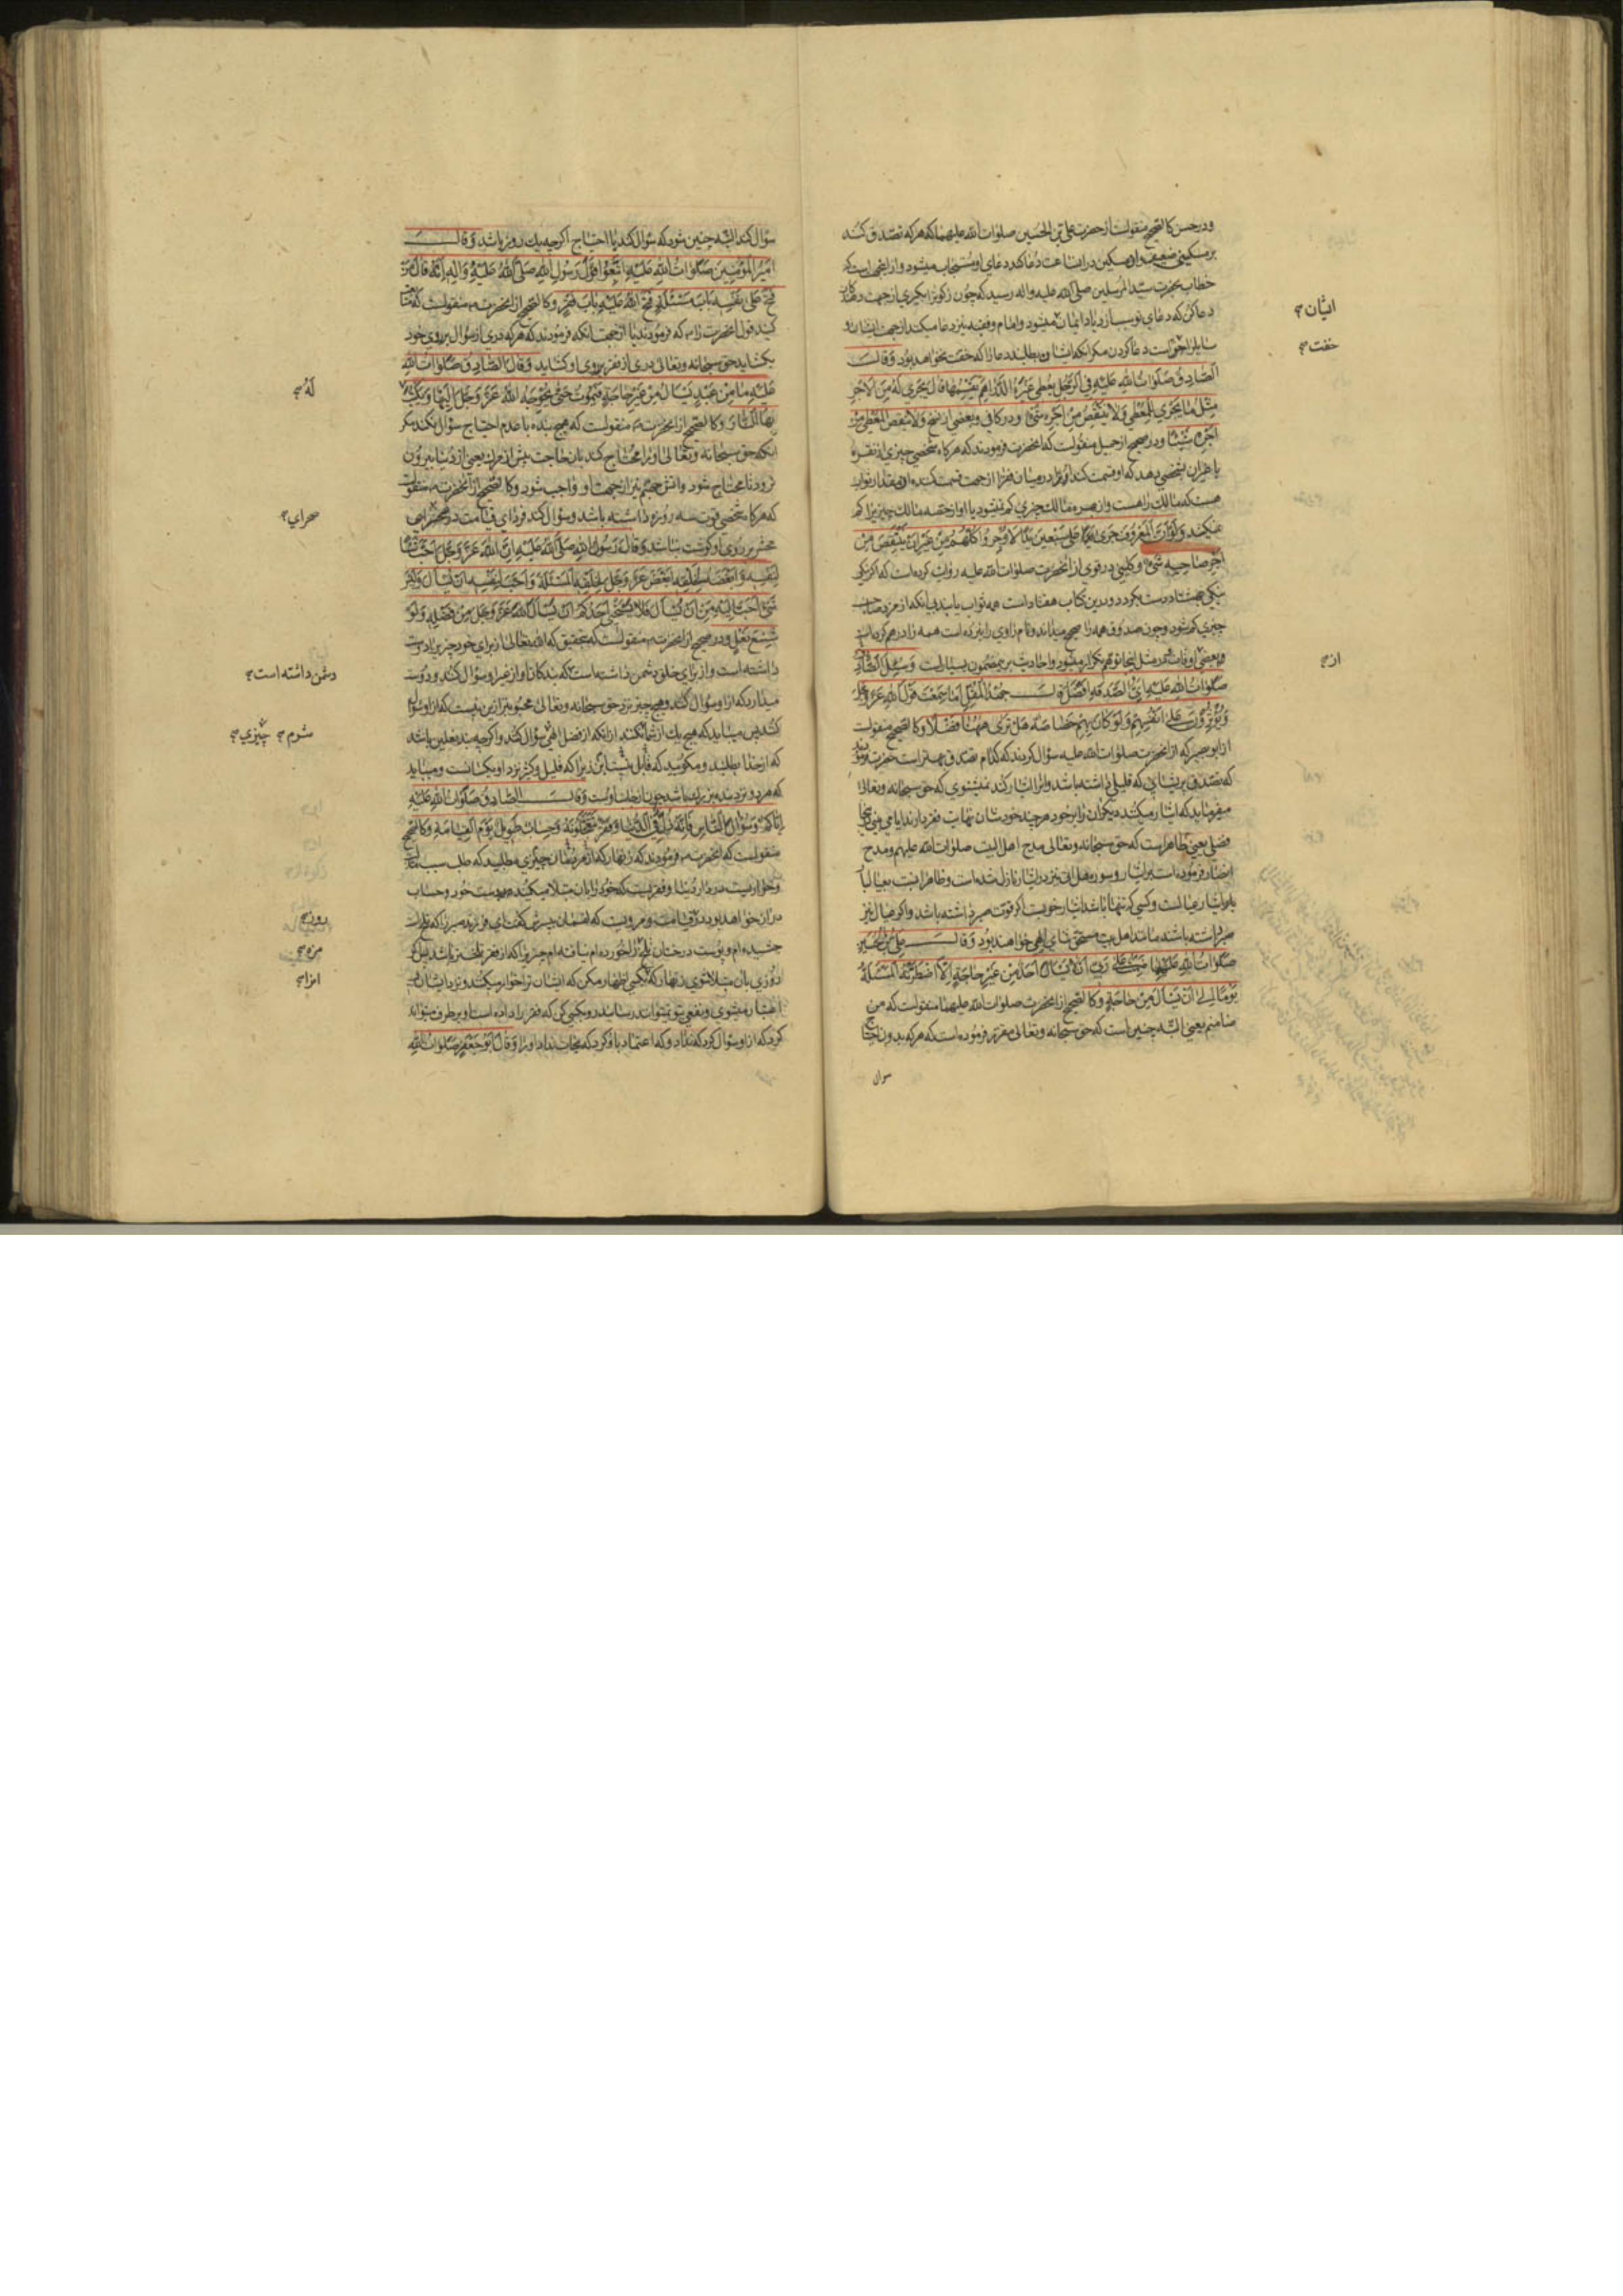 ودر حسن کالصحیح منقولست از حضرت علی بن الحسین صلوات الله علیهما که هر که تصدق کند
بر مسکینی ضعیف وان مسکین در انساعت دعا کند دعای او مستجاب میشود و از اینجهه است که
خطاب بحضرت سید المرسلین صلی الله علیه واله رسید که چون زکوة را بگیری از جهت ایشان
دعا کن که دعای تو سبب زیادتی ایمان میشود وامام وفقیه نیز دعا میکند از جهت ایشان و
سایل را خوبست دعا کردن مکر انکه ایشان بطلبند دعا را که خفت نخواهد بود وقال
الصادق صلوات الله علیه فی الرجل یعطی غیره الدراهم یقسمها قال یجری له من الاجر
مثل ما یجری للمعطی ولا ینقص من اجره شئ ودر کافی وبعضی از نسخ ولا ینقص المعطی من
اجره شیئا ودر صحیح از جمیل منقولست که انحضرت فرمودند که هر کاه شخصی چیزی از نقره
یا غیر ان بشخصی بدهد که او قسمت کند
هست که مالک را هست واز حصه مالک چیزی کم نمیشود یا او از حصه مالک چیزی را کم
نمیکند ولو ان المعروف جری علی سبعین یدا لاوجروا کلهم من غیر ان ینقص من
اجر صاحبه شئ وکلینی در قوی از انحضرت صلوات الله علیه روایت کرده است که اکر
نیکی بهشتاد دست بکردد ودرین کتاب هفتاد است همه ثواب یابند بی انکه از مزد صاحبش
چیزی کم شود وچون صدوق همه را صحیح میداند ونام راوی را نبرده است همه را درهم کرده است
وبعضی اوقات مثل اینجا توهم تکرار میشود واحادیث برین مضمون بسیار است وسئل الصادق
صلوات الله علیه ای الصدقة افضل قال جهد المقل اما سمعت قول الله عز وجل
ویؤثرون علی انفسهم ولو کان بهم خصاصة هل تری ههنا فضلا وکالصحیح منقولست
از ابو بصیر که از انحضرت صلوات الله علیه سؤال کردند که کدام تصدق بهتر است حضرت فرمودند
که تصدق پریشانی که قلیلی داشته باشد وانرا ایثار کند نمیشنوی که حق سبحانه وتعالی
میفرماید که ایثار میکنند دیکران را بر خود هر چند خودشان نهایت فقر دارند ایا می بینی اینجا
فضلی یعنی ظاهر است که حق سبحانه وتعالی مدح اهل البیت صلوات الله علیهم ومدح
انصار فرموده است بر ایثار وسوره هل اتی نیز در ایثار نازل شده است
وکسی که تنها باشد ایثار خوبست اکر قوت صبر داشته باشد واکر عیال نیز
صبر داشته باشند مانند اهل بیت مستحق ثنای الهی خواهند بود وقال علی بن الحسین
صلوات الله علیهما ضمنت علی ربی ان لا یسال احد من غیر حاجة الا اضطرته المسئلة
یوما الی ان یسال من حاجة وکالصحیح از انحضرت صلوات الله علیهما منقولست که من
ضامنم یعنی البته چنین است که حق سبحانه وتعالی مقرر فرموده است که هر که بدون احتیاج
سوال
اتیان
خفت
از
سؤال کند البته چنین شود که سؤال کند با احتیاج اکر چه یك روز باشد وقال
امیر المؤمنین صلوات الله علیه اتبعوا قول رسول الله صلی الله علیه واله انه قال من
فتح علی نفسه باب مسئلة فتح الله علیه باب فقر وکالصحیح از انحضرت منقولست که متابعت
کنید قول انحضرت را که فرمودند یا از جهت انکه فرمودند که هر که دری از سؤال بر روی خود
بکشاید حق سبحانه وتعالی دری از فقر بر روی او کشاید وقال الصادق صلوات الله
علیه ما من عبد یسال من غیر حاجة فیموت حتی یحوجه الله عز وجل الیها ویکتب
بها النار وکالصحیح از انحضرت منقولست که هیچ بنده با عدم احتیاج سؤال نکند مکر
انکه حق سبحانه وتعالی او را محتاج کند بان حاجت پیش از مردن یعنی از دنیا بیرون
نرود تا محتاج شود واتش جهنم نیز از جهت او واجب شود وکالصحیح از انحضرت منقولست
که هر کاه شخصی قوت سه روزه داشته باشد وسؤال کند فردای قیامت در
محشر بر روی او کوشت نباشد وقال رسول الله صلی الله علیه ان الله عز وجل احب شیئا
لنفسه وابغضه لخلقه ابغض عز وجل لخلقه المسئلة واحب لنفسه ان یسال ولیس
شئ احب الیه من ان یسال فلا یستحی احدکم ان یسال الله عز وجل من فضله ولو
شسع نعل ودر صحیح از انحضرت منقولست که بتحقیق که الله تعالی از برای خود چیزی را دوست
داشته است واز برای خلق دشمن داشته است که بندکان او از غیر او سؤال کنند ودوست
میدارد که از او سؤال کنند وهیچ چیز نزد حق سبحانه وتعالی محبوبتر ازین نیست که از او سؤال
کنند پس میباید که هیچ یك از شما نکنند از انکه از فضل الهی سؤال کنند واکر چه بند نعلین باشد
که از خدا بطلبید ومکوئید که قابل نیست این زیرا که قلیل وکثیر نزد او یکسانست ومیباید
که هر دو نزد بنده بزرك باشد چون از جانب اوست وقال الصادق صلوات الله علیه
ایاکم وسؤال الناس فانه ذل فی الدنیا وفقر تعجلونه وحساب طویل یوم القیامة وکالصحیح
منقولست که انحضرت فرمودند که زنهار که از مردمان چیزی مطلبید که طلب سبب مذلت
وخواریست در دار دنیا وفقریست که خود را بان مبتلا میکنید بدست خود وحساب
دراز خواهد بود در قیامت ومرویست که لقمان بپسرش کفت ای فرزند صبر را که تلخ است
چشیده ام وپوست درختان تلخ را خورده ام نیافته ام چیزی را که از فقر تلختر باشد پس اکر
روزی بان مبتلا شوی زنهار که بکسی اظهار مکن که ایشان ترا خوار میکنند ونزد ایشان بی
اعتبار میشوی ونفعی بتو نمیتوانند رسانید رو بکسی کن که فقر را داده است وبر طرف میتواند
کرد که از او سؤال کرد که نداد وکه اعتماد باو کرد که نجات نداد او را وقال ابو جعفر صلوات الله
له
صحرای
دشمن داشته است
شرم چیزی
روزی
مزه
انرا